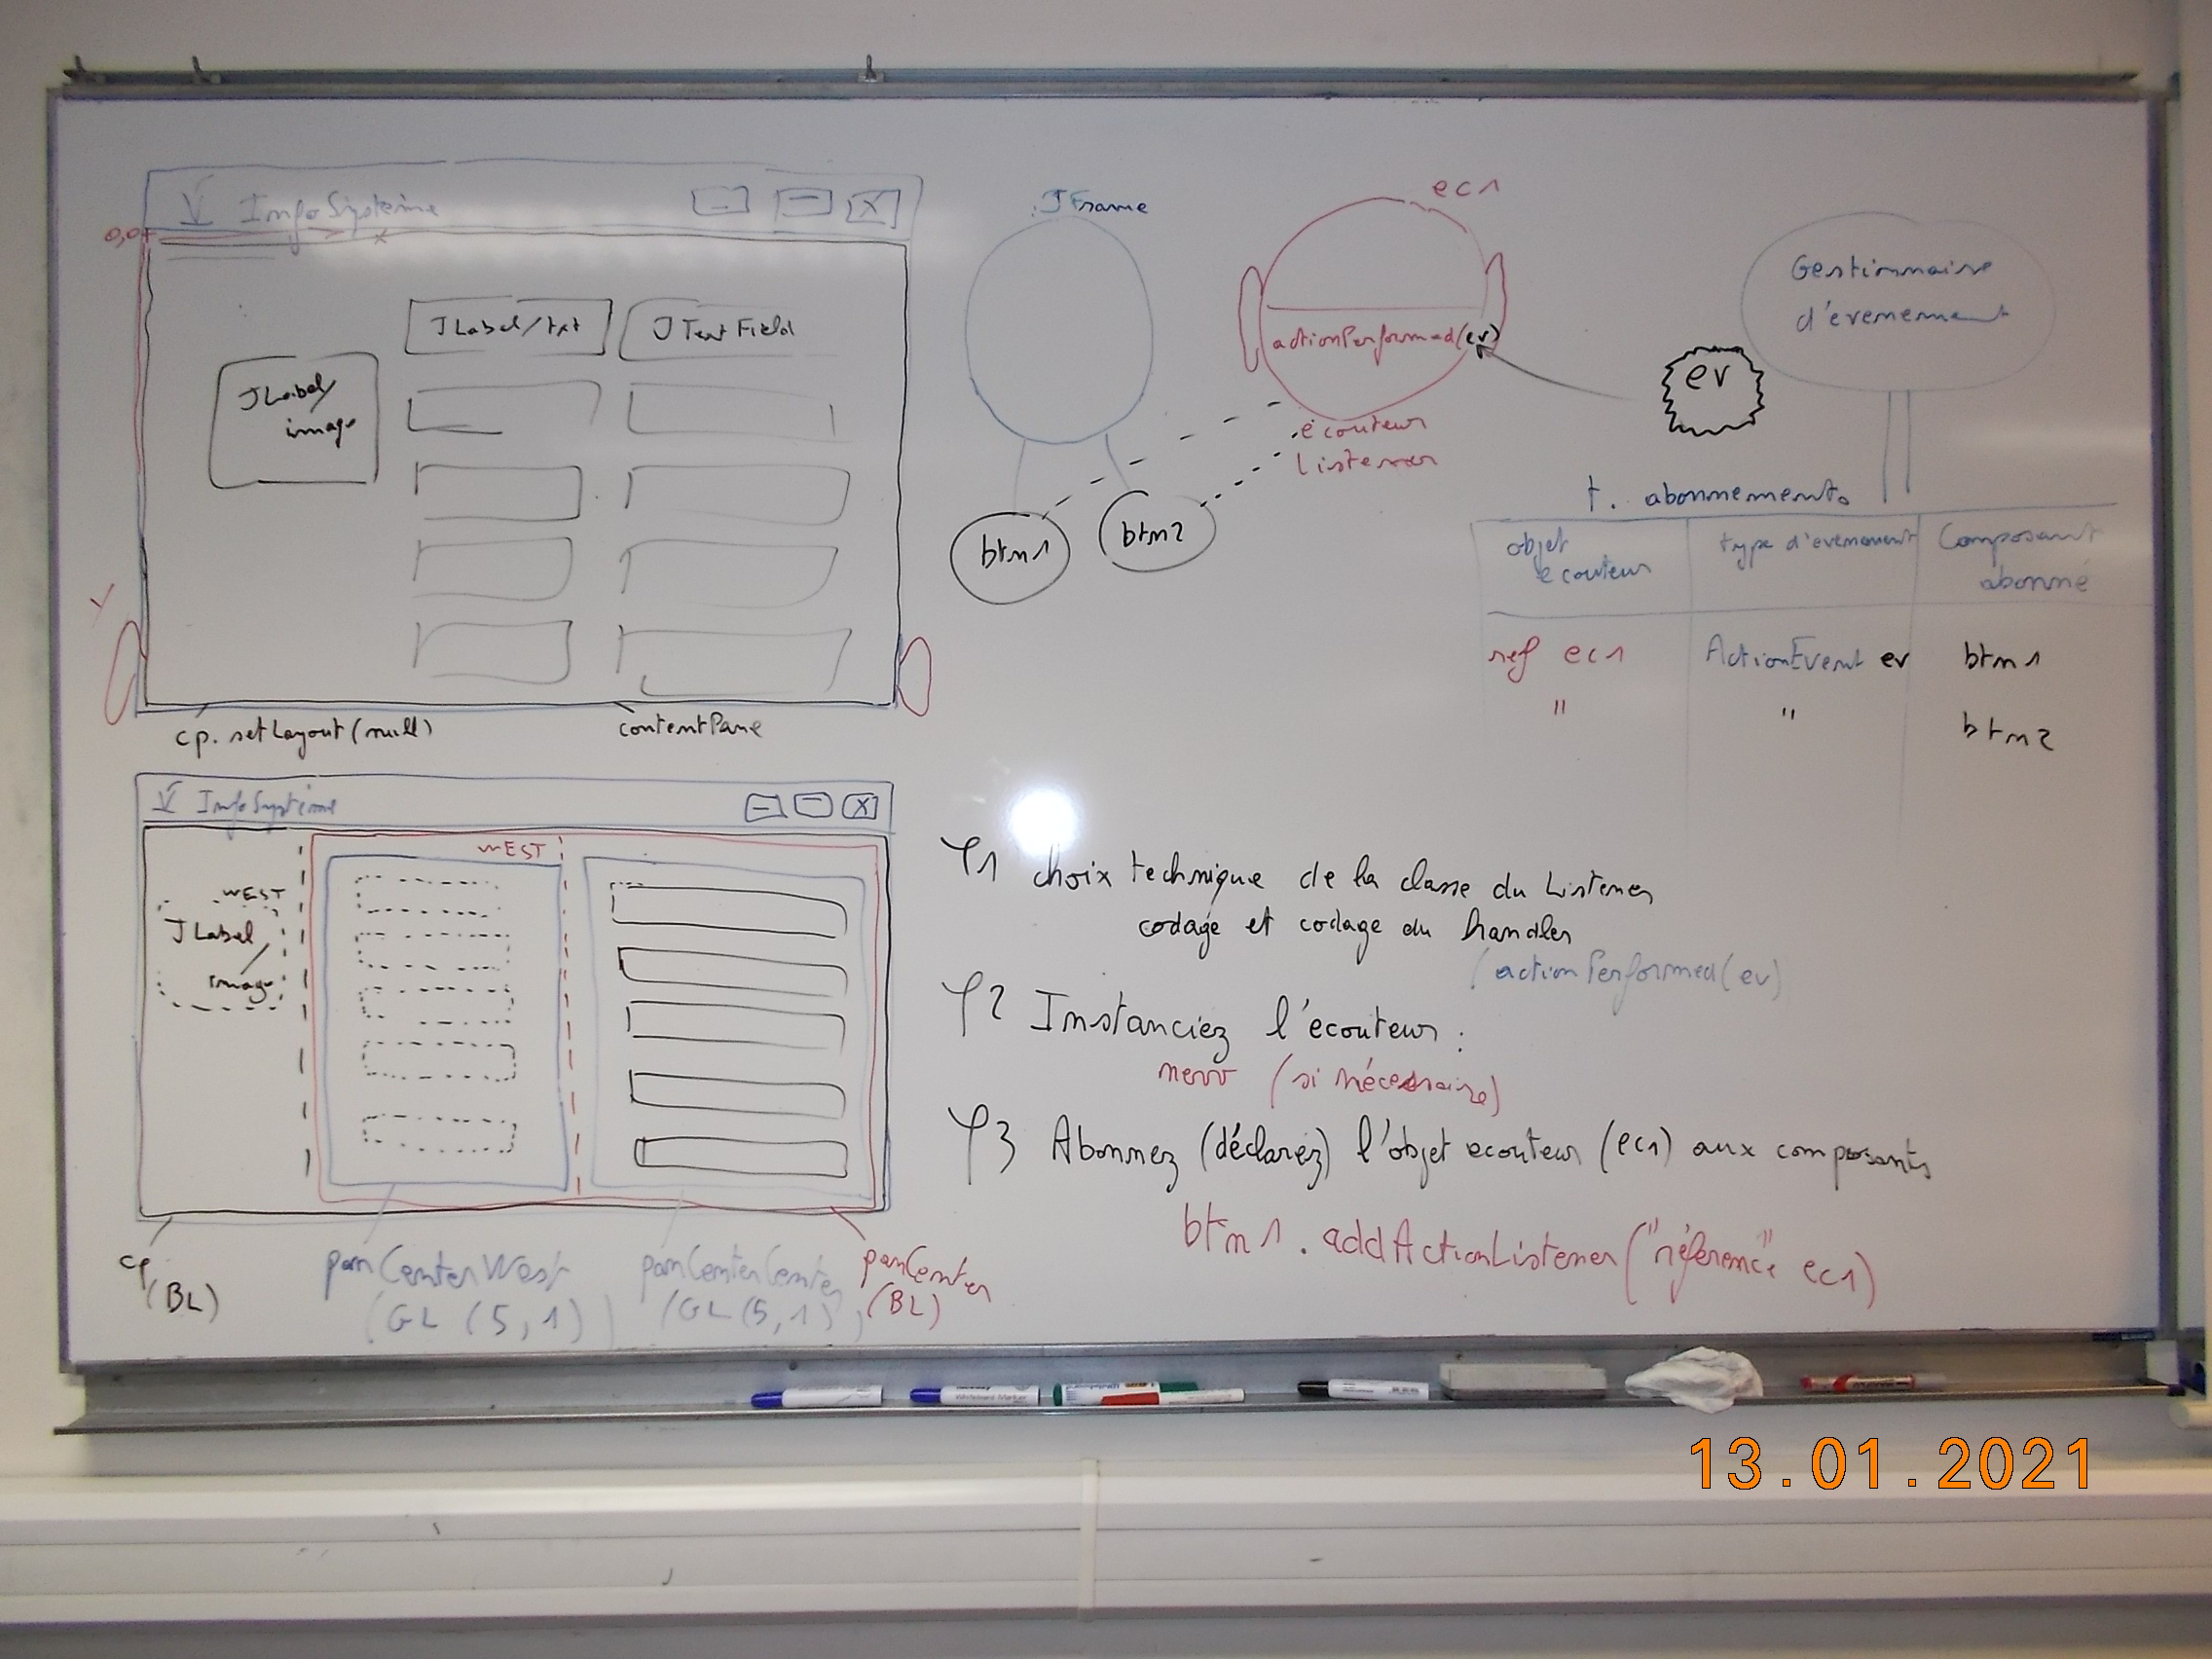 V InfoSystème
0,0
x
JLabel/txt
JTextField
JLabel/
image
Y
cp.setLayout(null)
contentPane
V InfoSystème
WEST
WEST
JLabel
/
image
cp
(BL)
panCenterWest
(GL (5,1))
panCenterCenter
(GL (5,1))
panCenter
(BL)
:JFrame
btn1
btn2
ec1
actionPerformed(ev)
ecouteur
Listener
ev
Gestionnaire
d'evenement
t. abonnements
objet
ecouteur
type d'evenement
Composant
abonné
ref ec1
ActionEvent ev
btn1
"
"
btn2
φ1 choix technique de la classe du Listener
codage et codage du handler
(actionPerformed(ev)
φ2 Instanciez l'ecouteur :
new (si nécessaire)
φ3 Abonnez (déclarez) l'objet ecouteur (ec1) aux composants
btn1.addActionListener("référence" ec1)
13.01.2021